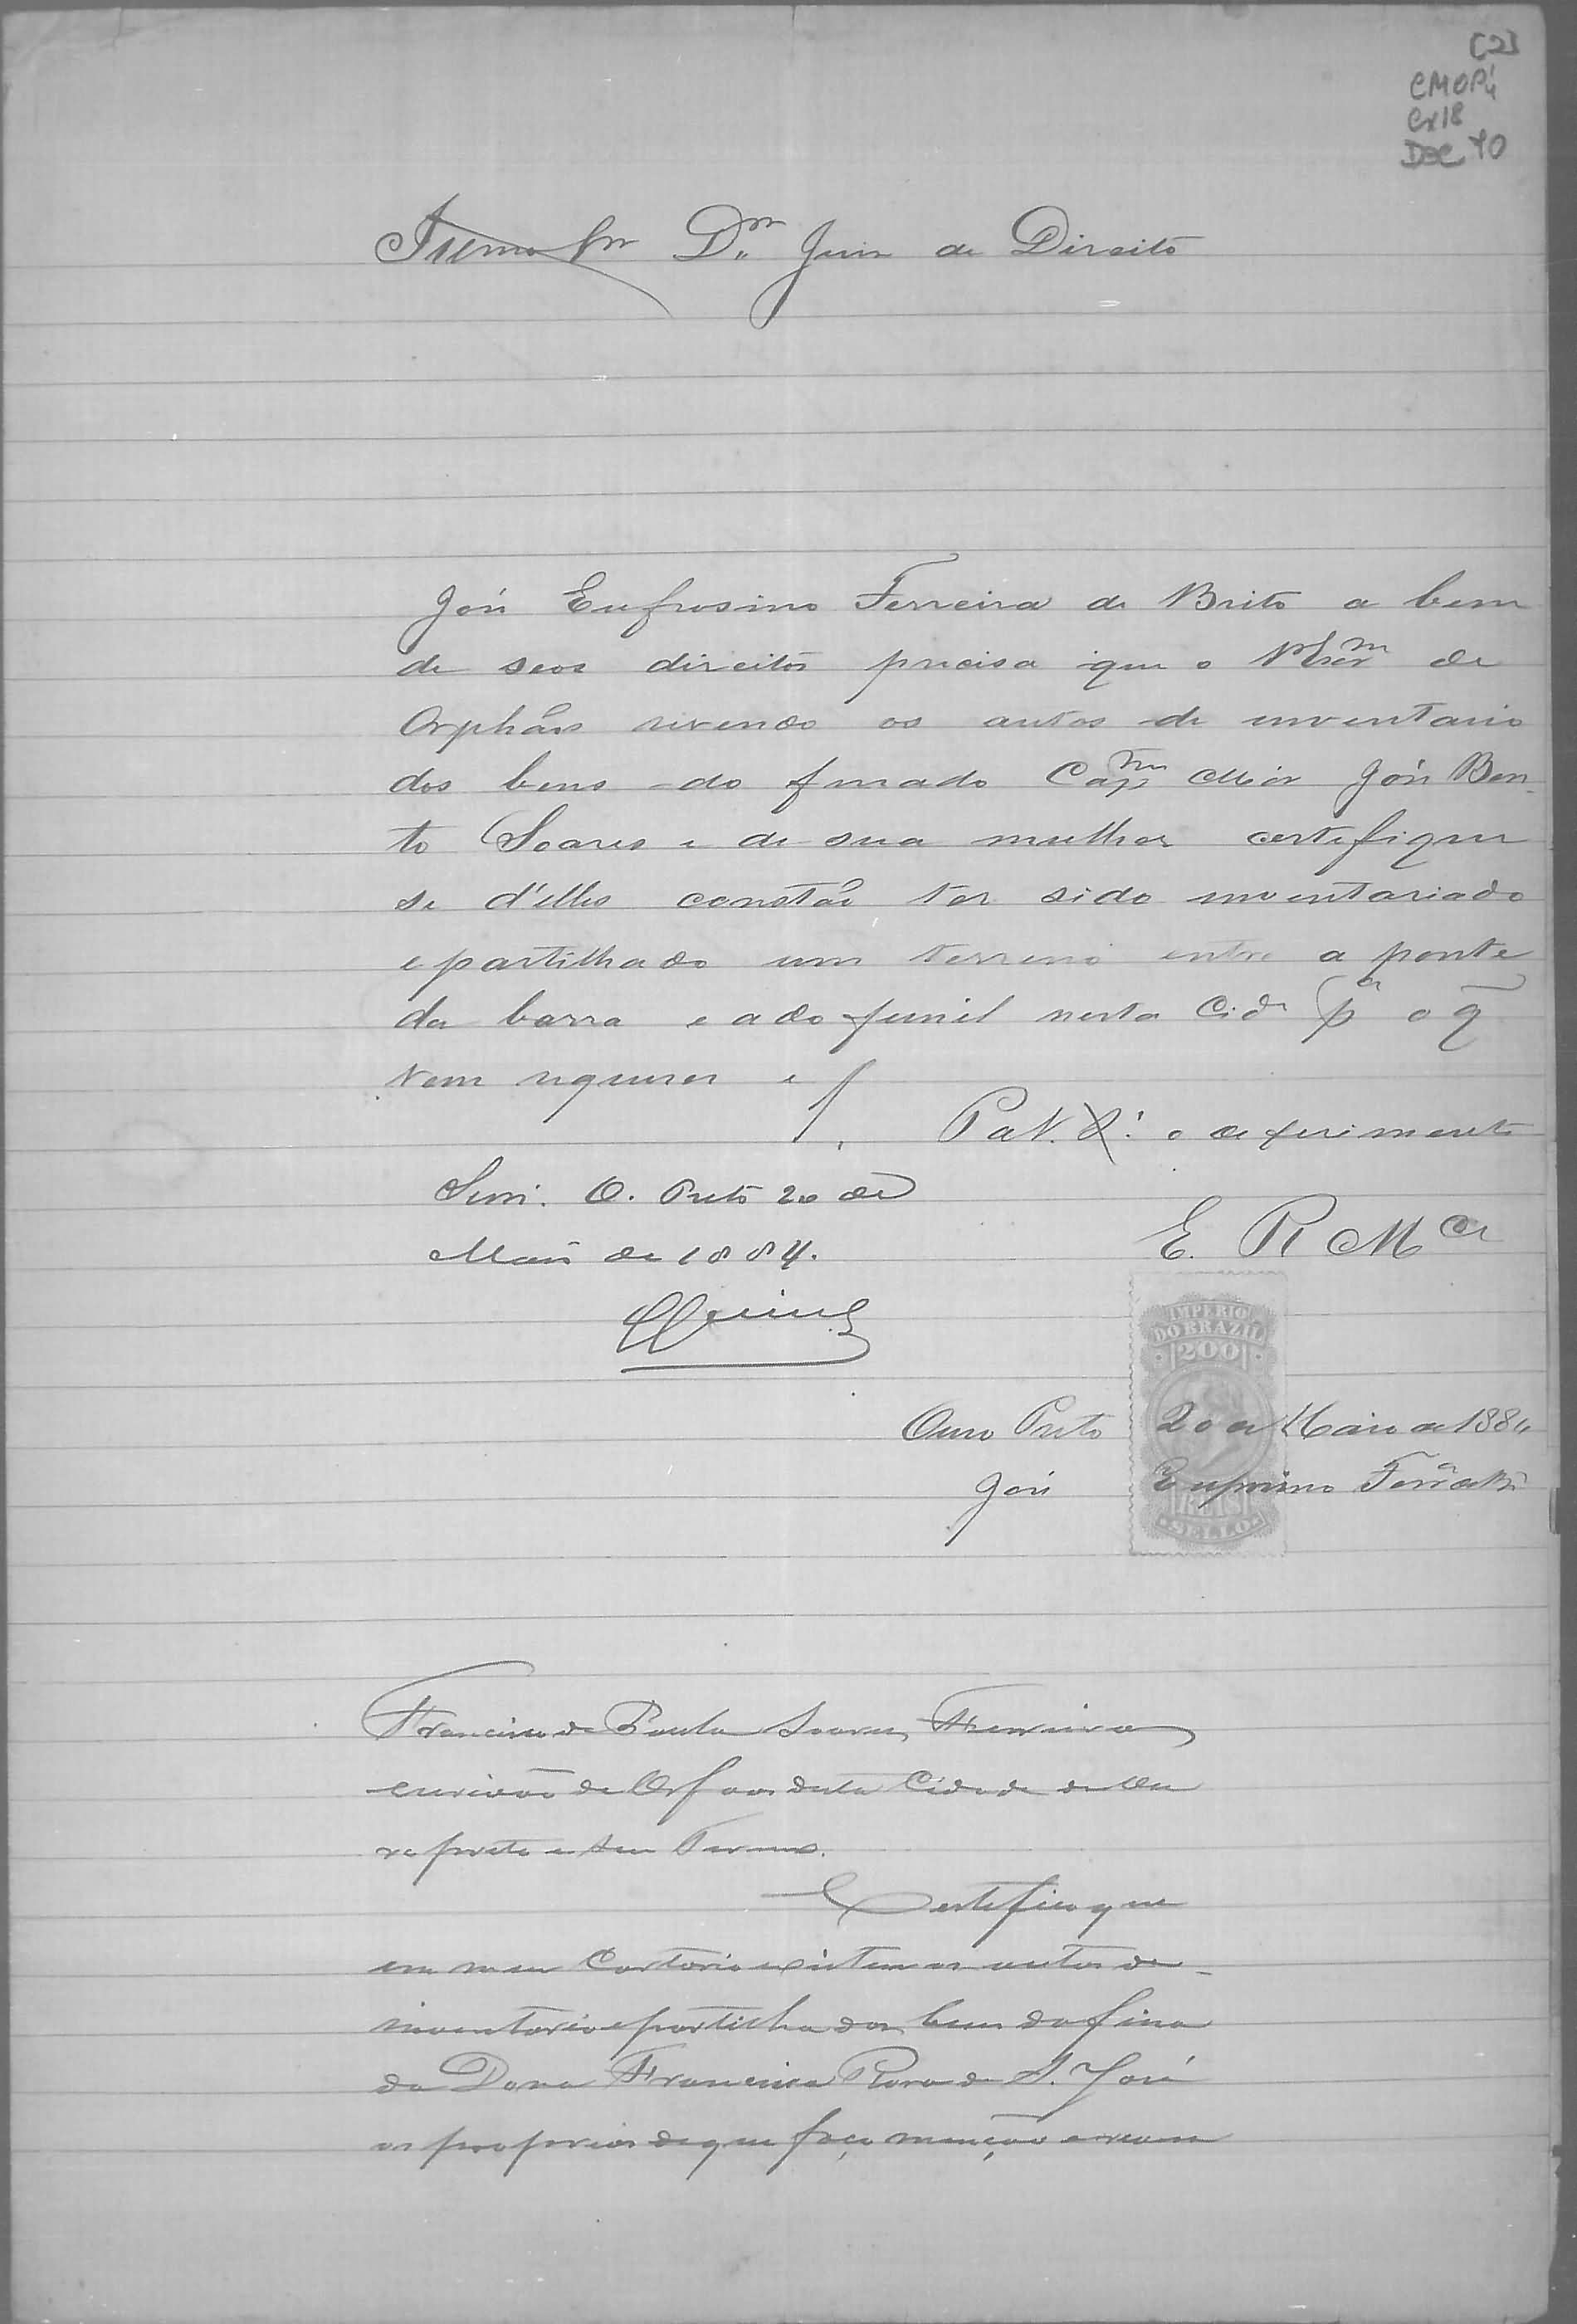 [2]
CMOP
Cx18
Doc 70
Illmo Snr Dr. Juiz de Direito
José Eufrosino Ferreira de Brito a bem
de seos direitos precisa que o de
Orphãos revendo os autos de inventario
dos bens do finado Capm Mór José Ben-
to Soares e de sua mulher certifique
se d'elles constão ter sido inventariado
e partilhado um terreno entre a ponte
da barra e a do funil nesta Cide pa o q̃
vem requerer e
P. a V. S. o deferimento
Sim. O. Preto 20 de
Maio de 1884.
E. R Mce
IMPERIO
DO BRAZIL
200
REIS
SELLO
Ouro Preto 20 de Maio de 1884
José Eufrosino Ferra de Bto
Francisco de Paula Soares Ferreira
escrivão de Orfaos desta Cidade de Ou
ro preto e seu Termo.
Certifico que
em meu Cartorio existem os autos de
inventario e partilha dos bens da fina
da Dona Francisca Rosa de S. José
os proprios de que faço menção e